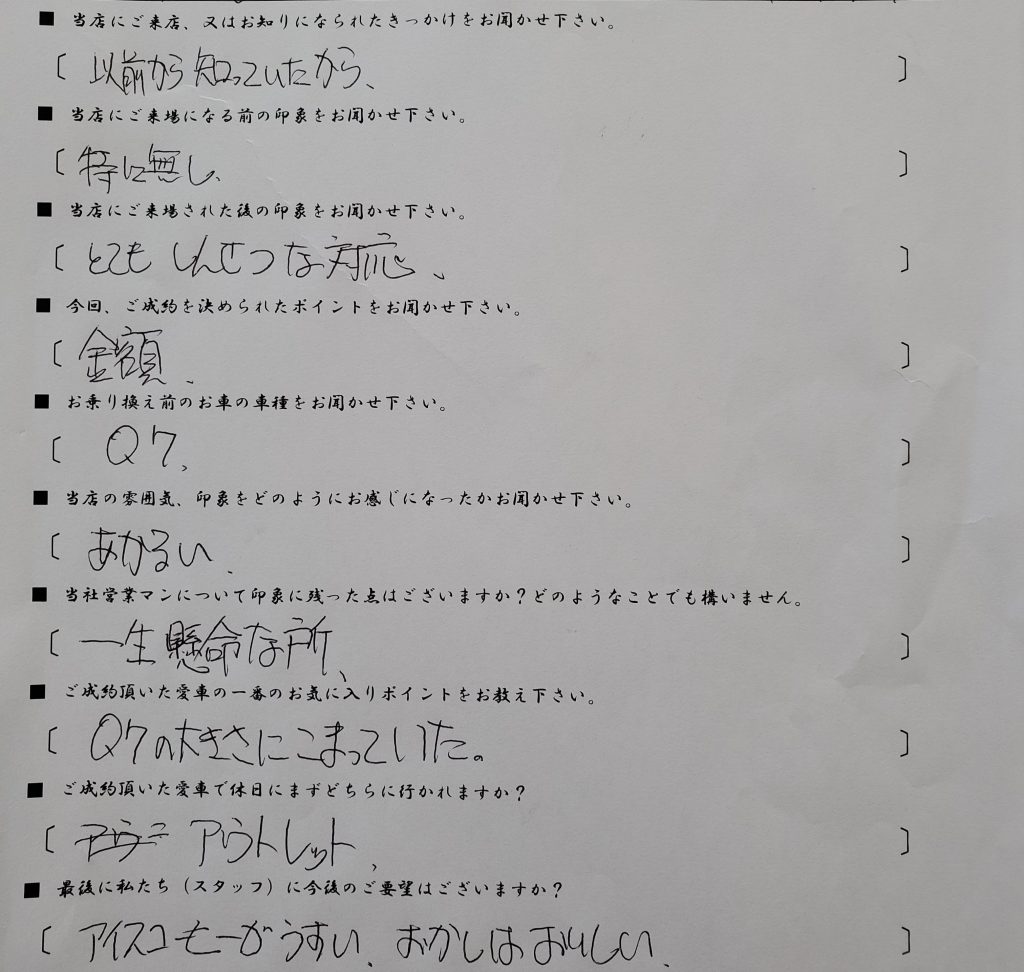 ■ 当店にご来店、又はお知りになられたきっかけをお聞かせ下さい。
〔 以前から知っていたから、 〕
■ 当店にご来場になる前の印象をお聞かせ下さい。
〔 特に無し、 〕
■ 当店にご来場された後の印象をお聞かせ下さい。
〔 とてもしんせつな対応、 〕
■ 今回、ご成約を決められたポイントをお聞かせ下さい。
〔 金額、 〕
■ お乗り換え前のお車の車種をお聞かせ下さい。
〔 Q7、 〕
■ 当店の雰囲気、印象をどのようにお感じになったかお聞かせ下さい。
〔 あかるい、 〕
■ 当社営業マンについて印象に残った点はございますか？どのようなことでも構いません。
〔 一生懸命な所、 〕
■ ご成約頂いた愛車の一番のお気に入りポイントをお教え下さい。
〔 Q7の大きさにこまっていた。 〕
■ ご成約頂いた愛車で休日にまずどちらに行かれますか？
〔 アウトレット、 〕
■ 最後に私たち（スタッフ）に今後のご要望はございますか？
〔 アイスコーヒーがうすい、おかしはおいしい、 〕